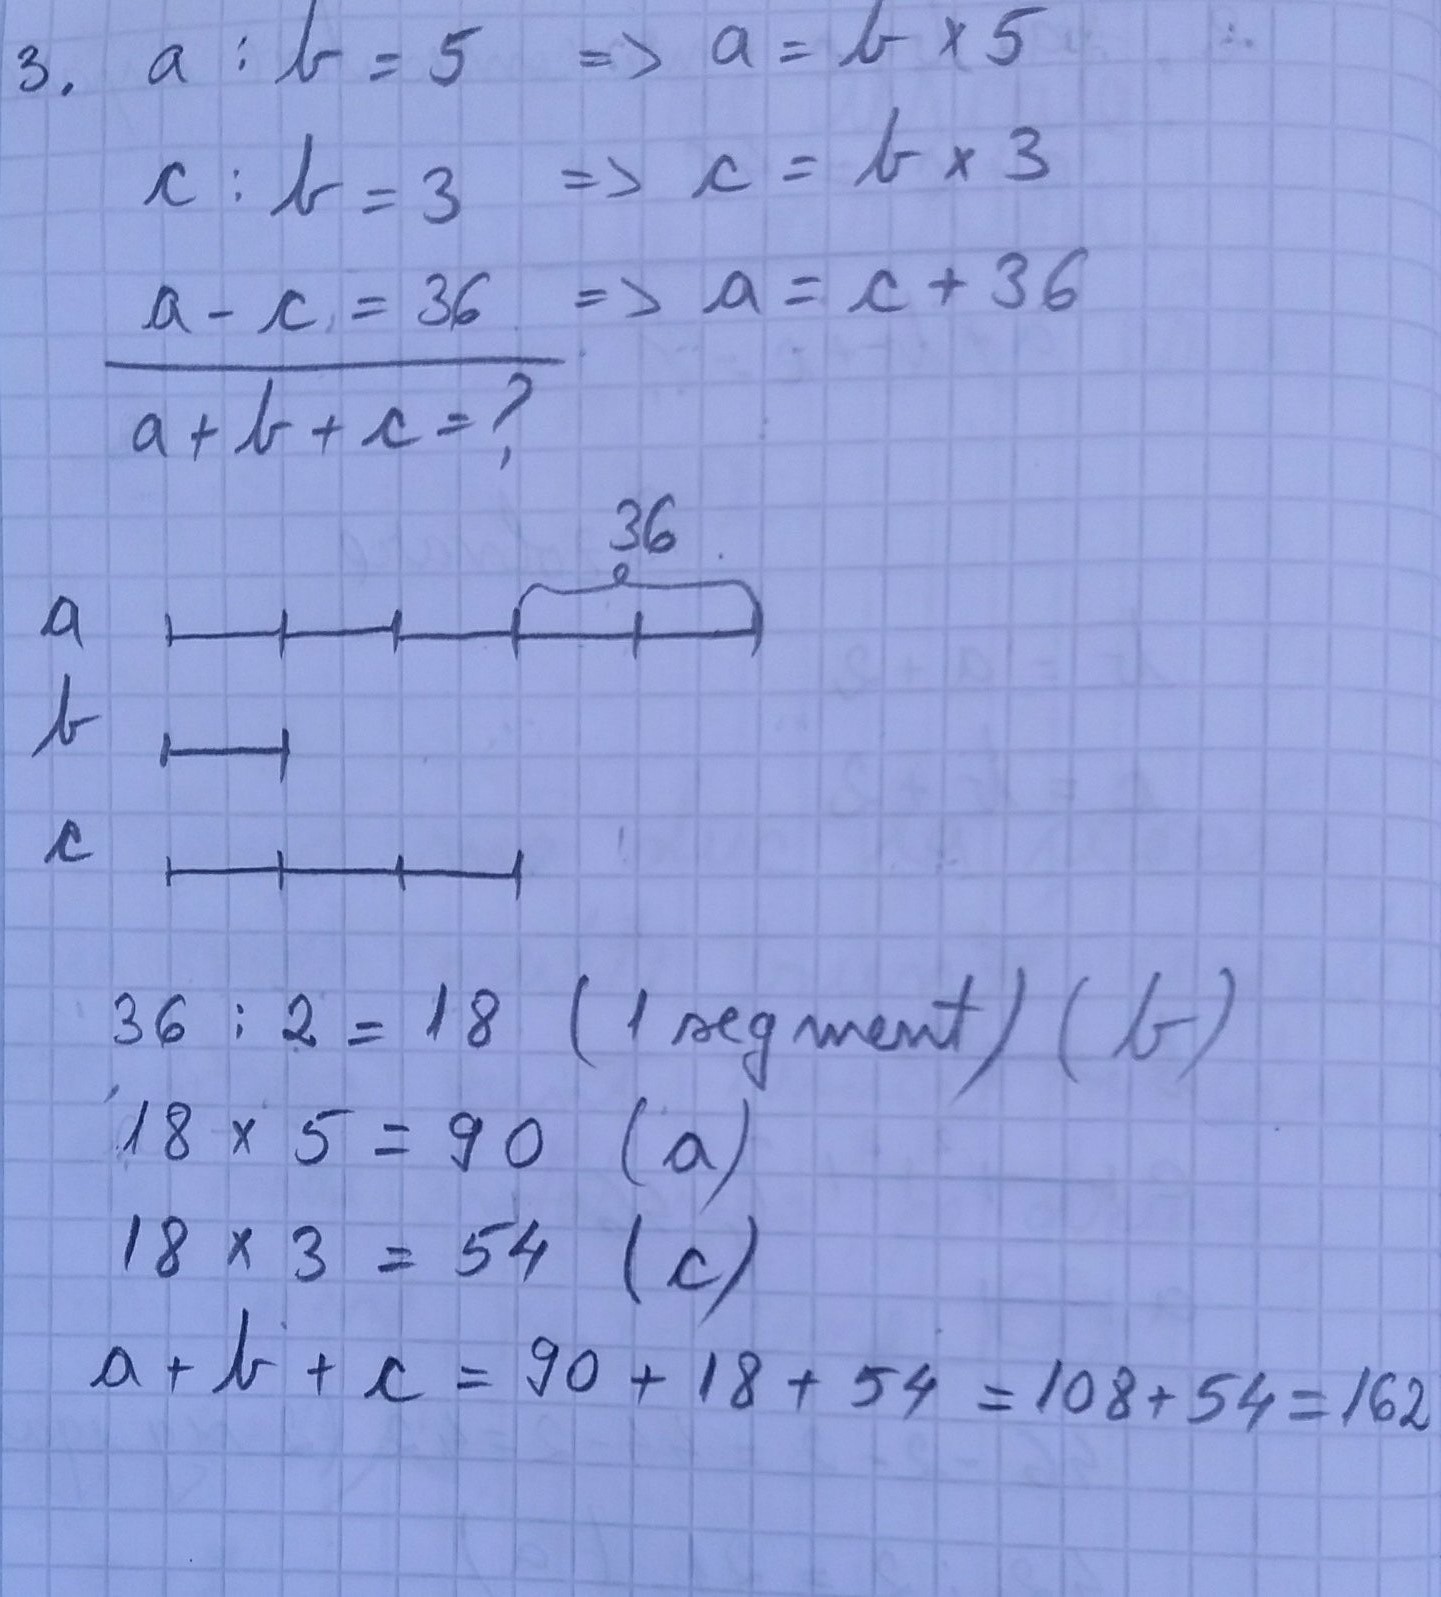 3. a : b = 5 => a = b × 5
c : b = 3 => c = b × 3
a - c = 36 => a = c + 36
a + b + c = ?
36
a
b
c
36 : 2 = 18 (1 segment) (b)
18 × 5 = 90 (a)
18 × 3 = 54 (c)
a + b + c = 90 + 18 + 54 = 108 + 54 = 162